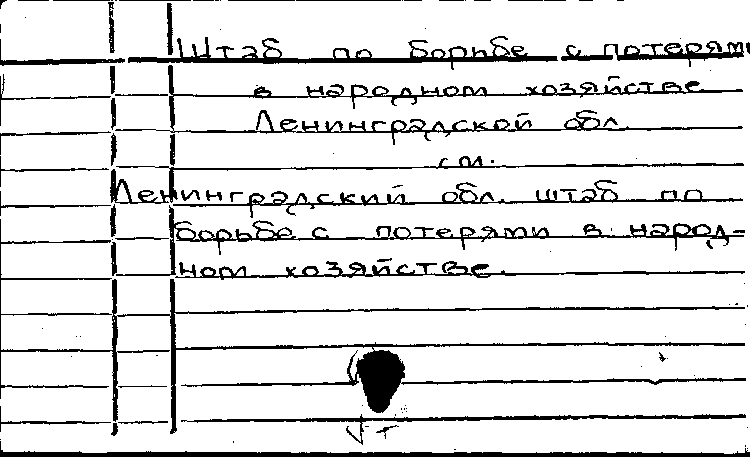 Штаб по борьбе с потерями
в народном хозяйстве
Ленинградской обл.
см.
Ленинградский обл. штаб по
борьбе с потерями в народ-
ном хозяйстве.